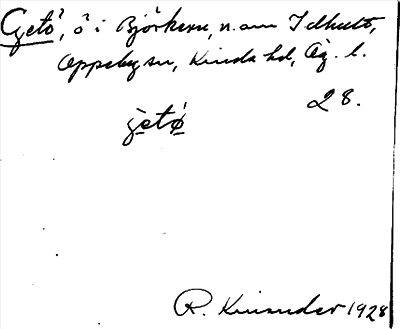 Getö, ö i Björkern, n. om Idhult,
Oppeby sn, Kinda hd, Ög. l.
28.
R. Kinander 1928